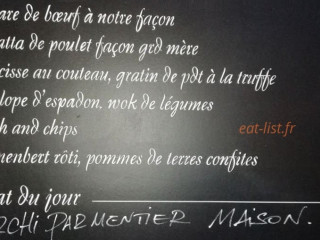 are de bœuf à notre façon
atta de poulet façon grd mère
cisse au couteau, gratin de pdt à la truffe
lope d'espadon, wok de légumes
h and chips
eat-list.fr
nenbert rôti, pommes de terres confites
at du jour
RCHI PARMENTIER MAISON.